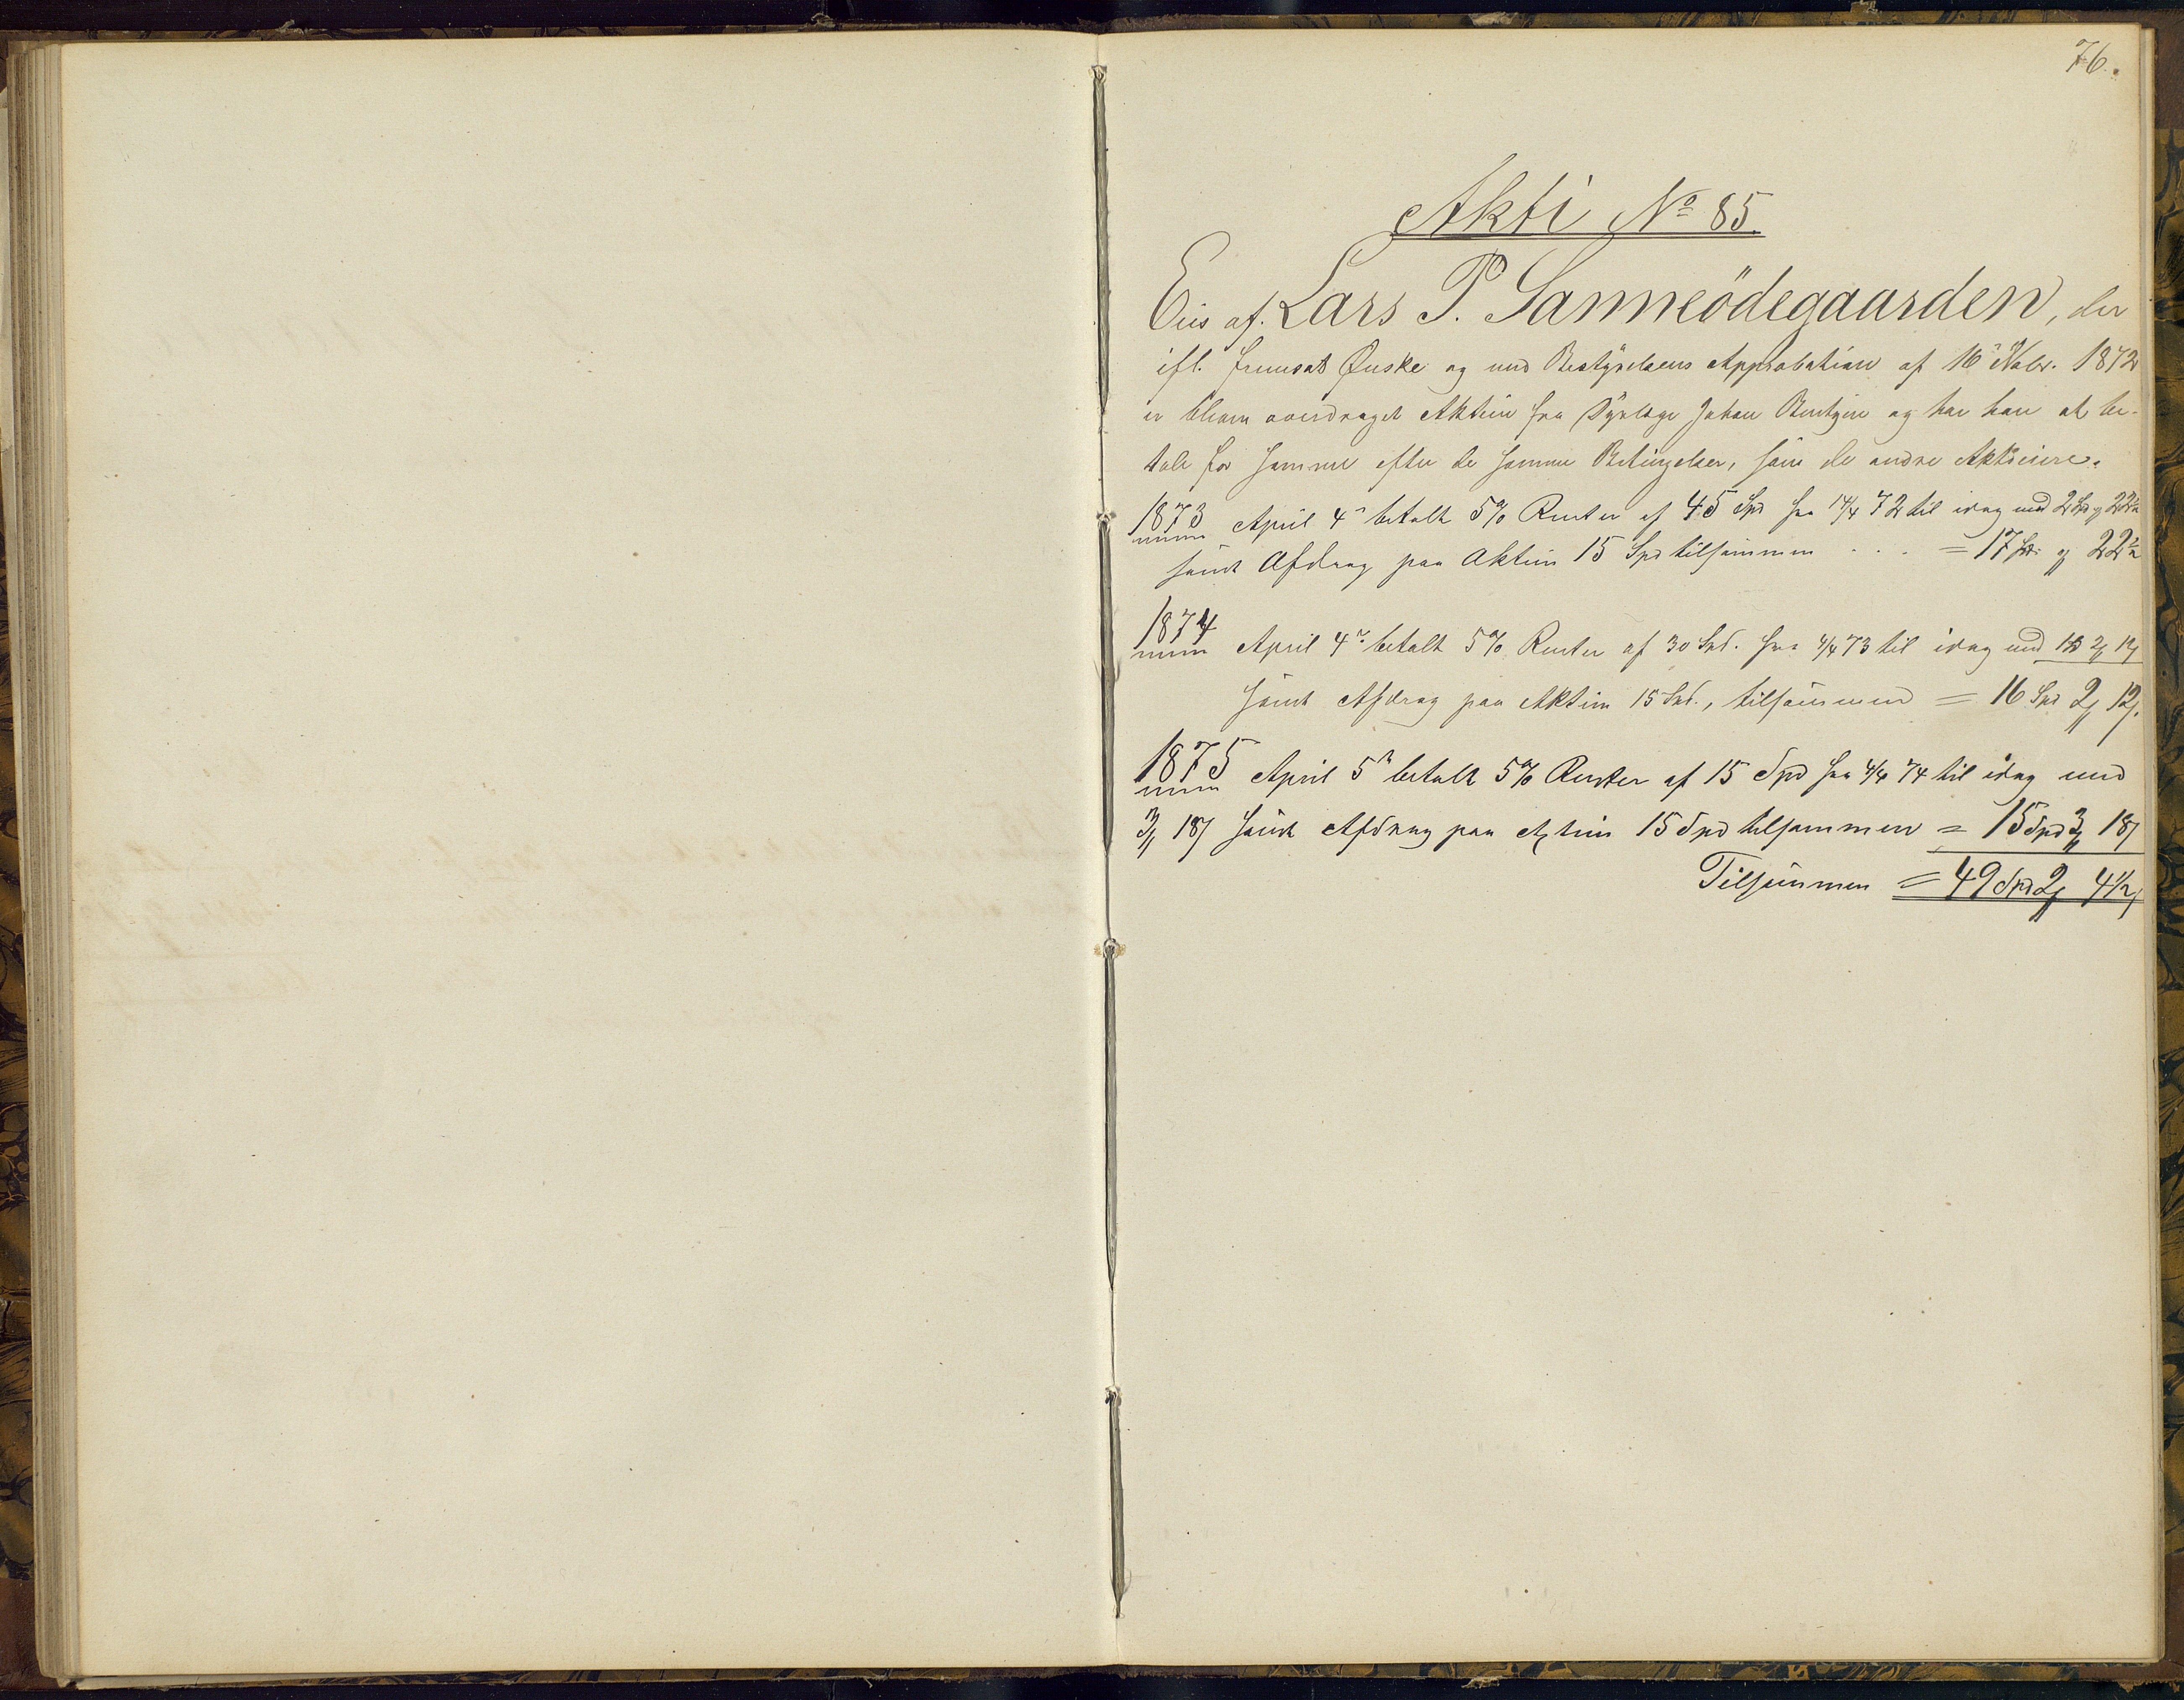 76.
Akti No 85.
Eies af. Lars P. Sanneödegaarden, der
ifl. fremsat Ønske og med Bestyrelsens Approbation af 16de Novbr. 1872
er bleven overdraget Aktien fra Dyrlæge Johan og har han at be-
tale for samme efter de samme Betingelser, som de andre Aktieeiere.
1873 April 4de betalt 5% Renter af 45 Spd fra 14/4 72 til idag med 2 Spd 22½
samt Afdrag paa Aktien 15 Spd tilsammen . . . = 17 Spd 22½
1874 April 4de betalt 5% Renter af 30 Spd. fra 4/4 73 til idag med 1 Spd 2 12
samt Afdrag paa Aktien 15 Spd., tilsammen = 16 Spd 2 12.
1875 April 5te betalt 5% Renter af 15 Spd fra 4/4 74 til idag med
3 18 samt Afdrag paa Aktien 15 Spd tilsammen = 15 Spd 3 18
Tilsammen = 49 Spd 2 4½